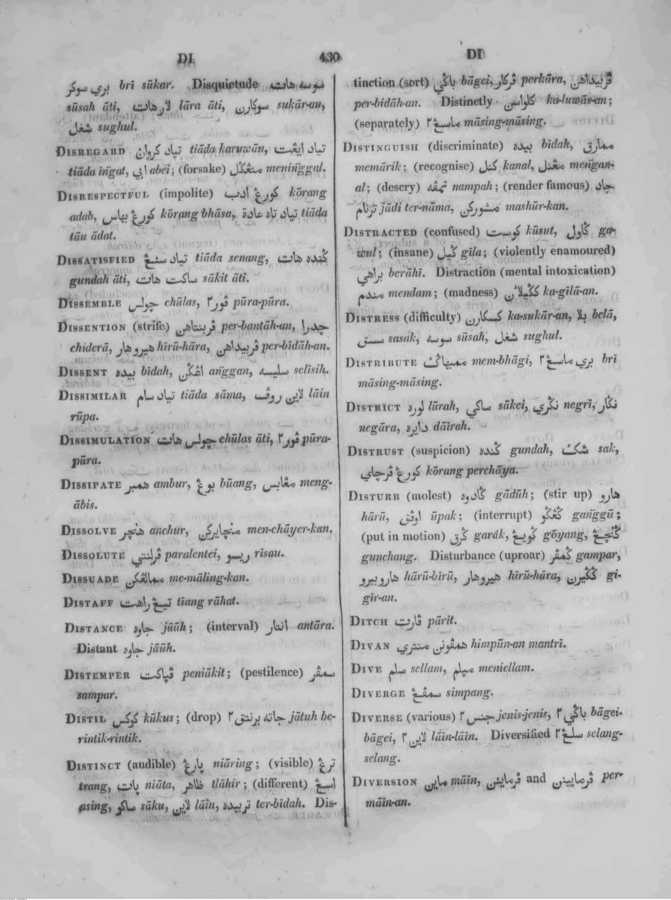 DI 430 DI
بري سوكر bri sūkar. Disquietude سوسه هات
sūsah āti, لارهات lāra āti, سوكارن sukār-an,
شغل sughul.
DISREGARD تياد كروان tiāda karuwān, تياد ايغت
tiāda īngat, ابي abei; (forsake) منغݢل meninggal.
DISRESPECTFUL (impolite) كورغ ادب kōrang
adab, كورغ بهاس kōrang bhāsa, تياد تاه عادة tiāda
tāu ādat.
DISSATISFIED تياد سنغ tiāda senang, ݢنده هات
gundah āti, ساكت هات sākit āti.
DISSEMBLE چولس chūlas, ڤور٢ pūra-pūra.
DISSENTION (strife) ڤربنتاهن per-bantāh-an, چدرا
chiderā, هيروهار hīrū-hāra, ڤربيداهن per-bīdāh-an.
DISSENT بيده bīdah, اڠݢن anggan, سليسه selīsih.
DISSIMILAR تياد سام tiāda sāma, لاين روڤ lāin
rūpa.
DISSIMULATION چولس هات chūlas āti, ڤور٢ pūra-
pūra.
DISSIPATE همبر ambur, بوغ būang, مغابس meng-
ābis.
DISSOLVE هنچر anchur, منچايركن men-chāyer-kan.
DISSOLUTE ڤرلنتي paralentei, ريسو risau.
DISSUADE ممالڠكن me-māling-kan.
DISTAFF تيغ راهت tīang rāhat.
DISTANCE جاوه jāūh; (interval) انتار antāra.
Distant جاوه jāūh.
DISTEMPER ڤپاكت peniākit; (pestilence) سمڤر
sampar.
DISTIL كوكس kūkus; (drop) جاته برنتق٢ jātuh be-
rintik-rintik.
DISTINCT (audible) پارغ niāring; (visible) ترغ
trang, پات niāta, ظاهر tlāhir; (different) اسغ
asing, ساكو sāku, لاين lāīn, تربيده ter-bīdah. Dis-
tinction (sort) باݢي bāgei, ڤركار perkāra, ڤربيداهن
per-bidāh-an. Distinctly كلواسن ka-luwās-an;
(separately) ماسغ٢ māsing-māsing.
DISTINGUISH (discriminate) بيده bīdah, ممارق
memārik; (recognise) كنل kanal, مغنل mengan-
al; (descry) نمڤه nampah; (render famous) جاد
ترنام jādi ter-nāma, مشوركن mashūr-kan.
DISTRACTED (confused) كوست kūsut, ݢاول ga-
wul; (insane) ݢيل gīla; (violently enamoured)
براهي berāhi. Distraction (mental intoxication)
مندم mendam; (madness) كݢيلان ka-gilā-an.
DISTRESS (difficulty) كسكارن ka-sukār-an, بلا belā,
سسق sasak, سوسه sūsah, شغل sughul.
DISTRIBUTE ممبهاݢي mem-bhāgi, بري ماسغ٢ bri
māsing-māsing.
DISTRICT لوره lūrah, ساكي sākei, نݢري negrī, نݢار
negāra, دايره dāirah.
DISTRUST (suspicion) ݢنده gundah, شك sak,
كورغ ڤرچاي kōrang perchāya.
DISTURB (molest) ݢادوه gādūh; (stir up) هارو
hārū, اوڤق ūpak; (interrupt) ݢغݢو ganggū;
(put in motion) ݢرق garāk, ݢويغ gōyang, ݢنچغ
gunchang. Disturbance (uproar) ݢمڤر gampar,
هاروبيرو hārū-bīrū, هيروهار hīrū-hāra, ݢݢيرن gi-
gīr-an.
DITCH ڤارت pārit.
DIVAN همڤونن منتري himpūn-an mantrī.
DIVE سلم sellam, ميلم meniellam.
DIVERGE سمڤغ simpang.
DIVERSE (various) جنس٢ jenis-jenis, باݢي٢ bāgei-
bāgei, لاين٢ lāin-lāin. Diversified سلغ٢ selang-
selang.
DIVERSION ماين māin, ڤرماين and ڤرماينن per-
māin-an.